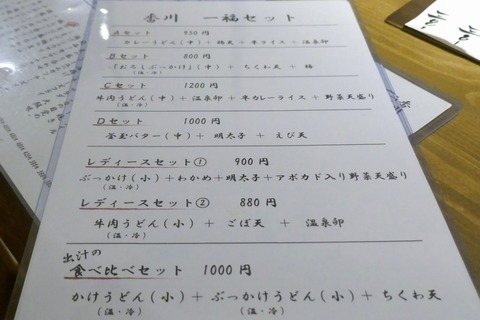 香川 一福セット
Aセット 850円
カレーうどん(中)+鶏天+半ライス+温泉卵
Bセット 800円
「おろしぶっかけ」(中)+ちくわ天+梅
(温・冷)
Cセット 1200円
牛肉うどん(中)+温泉卵+半カレーライス+野菜天盛り
(温・冷)
Dセット 1000円
釜玉バター(中)+明太子+えび天
レディースセット① 900円
ぶっかけ(小)+わかめ+明太子+アボカド入り野菜天盛り
(温・冷)
レディースセット② 880円
牛肉うどん(小)+ごぼ天+温泉卵
(温・冷)
出汁の
食べ比べセット 1000円
かけうどん(小)+ぶっかけうどん(小)+ちくわ天
(温・冷) (温・冷)